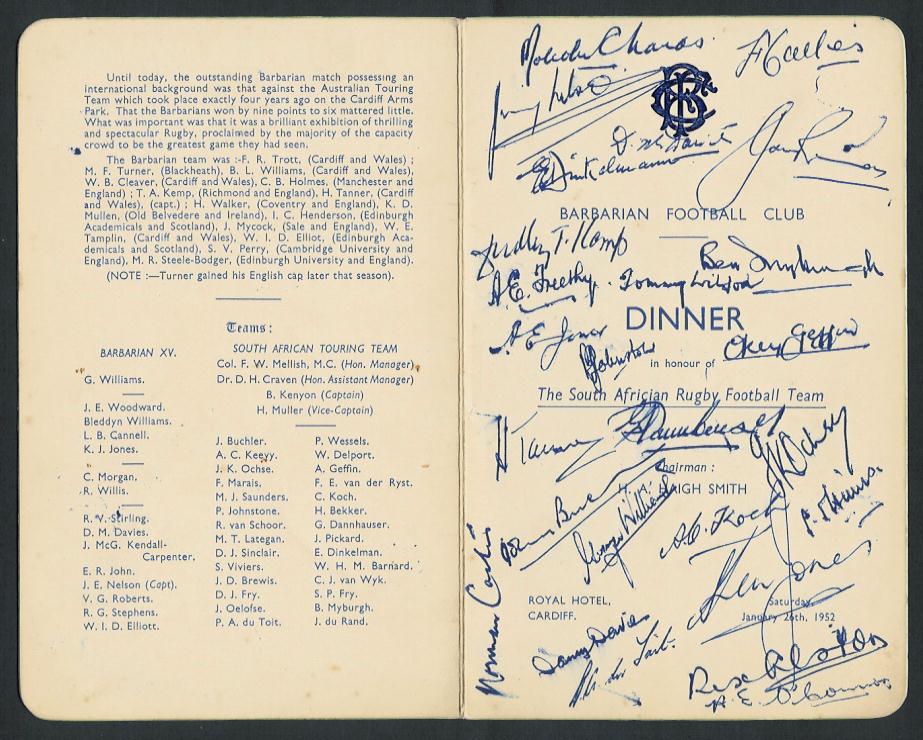 Until today, the outstanding Barbarian match possessing an
international background was that against the Australian Touring
Team which took place exactly four years ago on the Cardiff Arms
Park. That the Barbarians won by nine points to six mattered little.
What was important was that it was a brilliant exhibition of thrilling
and spectacular Rugby, proclaimed by the majority of the capacity
crowd to be the greatest game they had seen.
The Barbarian team was :-F. R. Trott, (Cardiff and Wales) ;
M. F. Turner, (Blackheath), B. L. Williams, (Cardiff and Wales),
W. B. Cleaver, (Cardiff and Wales), C. B. Holmes, (Manchester and
England) ; T. A. Kemp, (Richmond and England), H. Tanner, (Cardiff
and Wales), (capt.) ; H. Walker, (Coventry and England), K. D.
Mullen, (Old Belvedere and Ireland), I. C. Henderson, (Edinburgh
Academicals and Scotland), J. Mycock, (Sale and England), W. E.
Tamplin, (Cardiff and Wales), W. I. D. Elliot, (Edinburgh Aca-
demicals and Scotland), S. V. Perry, (Cambridge University and
England), M. R. Steele-Bodger, (Edinburgh University and England).
(NOTE :—Turner gained his English cap later that season).
Teams :
BARBARIAN XV.
G. Williams.
J. E. Woodward.
Bleddyn Williams.
L. B. Cannell.
K. J. Jones.
C. Morgan.
R. Willis.
R. V. Stirling.
D. M. Davies.
J. McG. Kendall-
Carpenter.
E. R. John.
J. E. Nelson (Capt).
V. G. Roberts.
R. G. Stephens.
W. I. D. Elliott.
SOUTH AFRICAN TOURING TEAM
Col. F. W. Mellish, M.C. (Hon. Manager)
Dr. D. H. Craven (Hon. Assistant Manager)
B. Kenyon (Captain)
H. Muller (Vice-Captain)
J. Buchler.
A. C. Keevy.
J. K. Ochse.
F. Marais.
M. J. Saunders.
P. Johnstone.
R. van Schoor.
M. T. Lategan.
D. J. Sinclair.
S. Viviers.
J. D. Brewis.
D. J. Fry.
J. Oelofse.
P. A. du Toit.
P. Wessels.
W. Delport.
A. Geffin.
F. E. van der Ryst.
C. Koch.
H. Bekker.
G. Dannhauser.
J. Pickard.
E. Dinkelman.
W. H. M. Barnard.
C. J. van Wyk.
S. P. Fry.
B. Myburgh.
J. du Rand.
E Dinkelmann
BARBARIAN FOOTBALL CLUB
A. E. Freethy.
DINNER
Okey Geffin
Johnstone
in honour of
The South African Rugby Football Team
H Tanner
Chairman :
HAIGH SMITH
A.C. Koch
Ken Jones
ROYAL HOTEL,
CARDIFF.
Saturday
January 26th, 1952
Danny Davies
Rex Alston